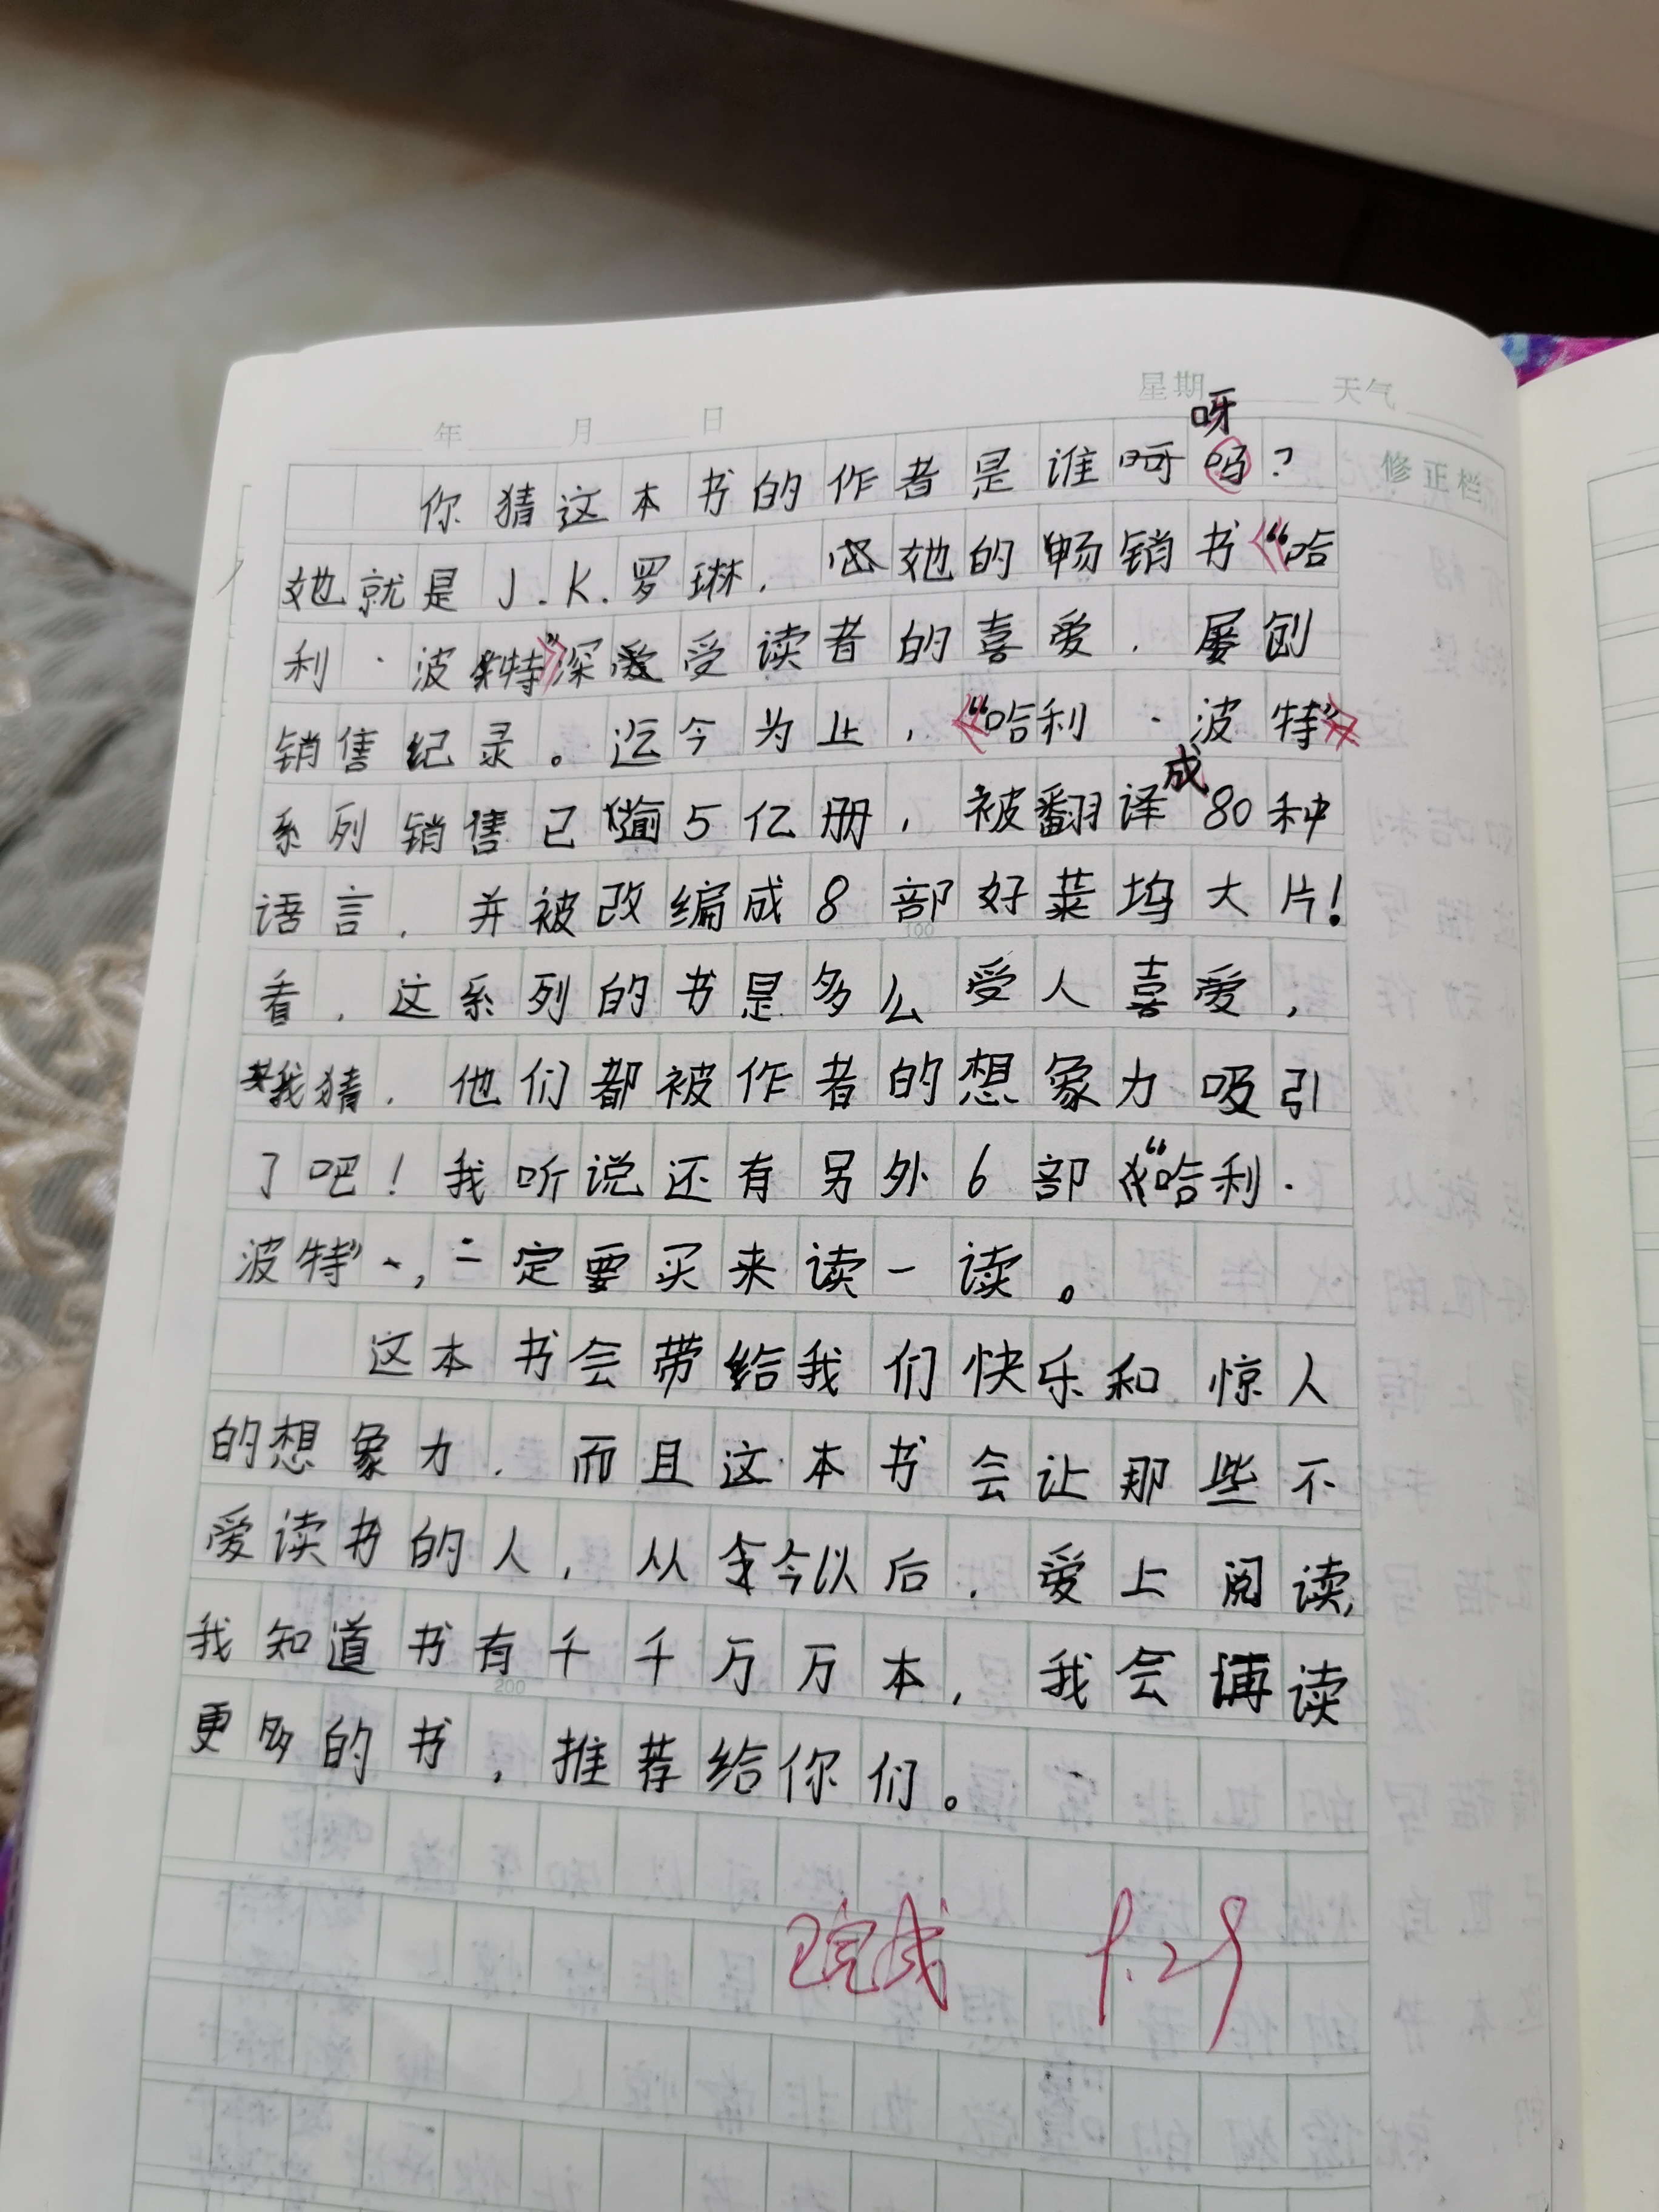 星期 天气
年 月 日
修正栏
呀
你猜这本书的作者是谁呵吗?
她就是J.K.罗琳,她的畅销书《“哈
利·波特”》深受读者的喜爱,屡创
销售纪录。迄今为止,《“哈利·波特”》
成
系列销售已逾5亿册,被翻译80种
语言,并被改编成8部好莱坞大片!
看,这系列的书是多么受人喜爱,
我猜,他们都被作者的想象力吸引
了吧!我听说还有另外6部“哈利·
波特”,一定要买来读一读。
这本书会带给我们快乐和惊人
的想象力,而且这本书会让那些不
爱读书的人,从今以后,爱上阅读,
我知道书有千千万万本,我会诵读
更多的书,推荐给你们。
100
200
已完成 9.29